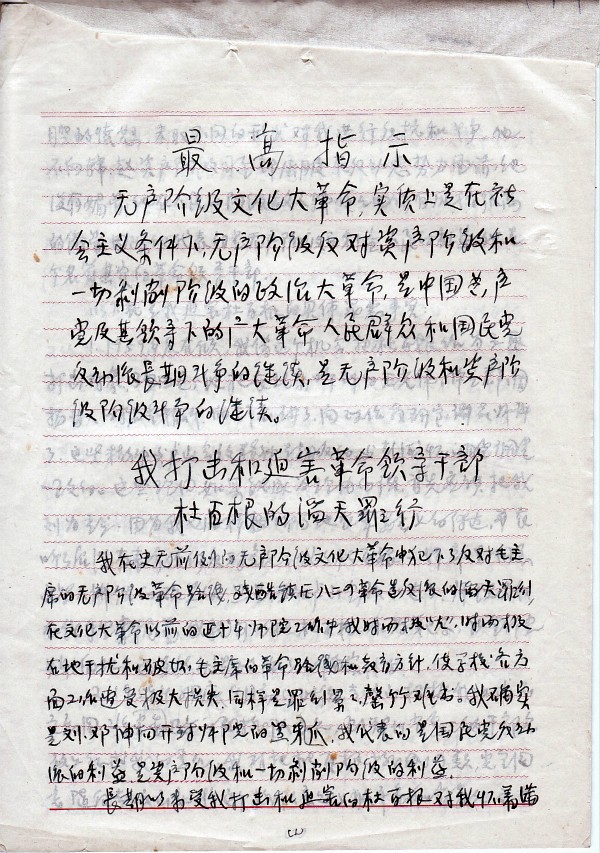 最高指示
无产阶级文化大革命,实质上是在社
会主义条件下,无产阶级反对资产阶级和
一切剥削阶级的政治大革命,是中国共产
党及其领导下的广大革命人民群众和国民党
反动派长期斗争的继续,是无产阶级和资产阶
级阶级斗争的继续。
我打击和迫害革命领导干部
杜百根的滔天罪行
我在史无前例的无产阶级文化大革命中犯下了反对毛主
席的无产阶级革命路线,残酷镇压八二四革命造反派的滔天罪行,
在文化大革命以前的近十年师院工作中,我时而极“左”,时而极
右地干扰和破坏毛主席的革命路线和教育方针,使学校各方
面工作遭受极大损失,同样是罪行累累,罄竹难书。我确实
是刘、邓伸向开封师院的黑爪,我代表的是国民党反动
派的利益,是资产阶级和一切剥削阶级的利益。
长期以来受我打击和迫害的杜百根对我怀着满
(1)